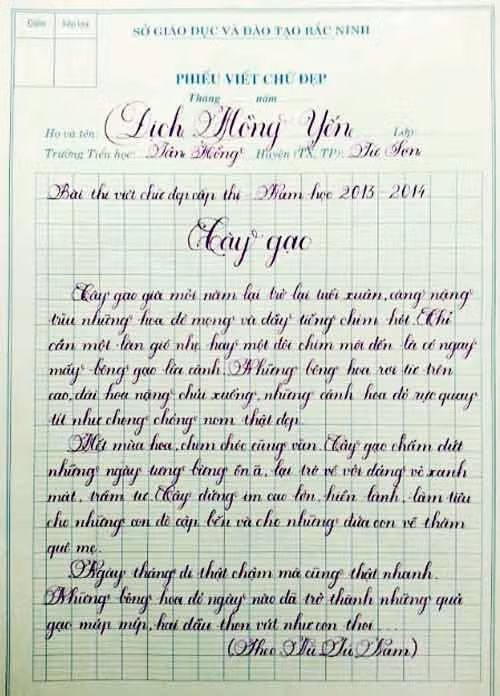 Điểm Xếp loại
SỞ GIÁO DỤC VÀ ĐÀO TẠO BẮC NINH
PHIẾU VIẾT CHỮ ĐẸP
Tháng năm
Họ và tên: Địch Hồng Yến Lớp:
Trường Tiểu học: Tân Hồng Huyện (TX, TP): Từ Sơn
Bài thi viết chữ đẹp cấp thị - Năm học 2013 - 2014
Cây gạo
Cây gạo già mỗi năm lại trở lại tuổi xuân, càng nặng
trĩu những hoa đỏ mọng và đầy tiếng chim hót. Chỉ
cần một làn gió nhẹ hay một đôi chim mới đến là có ngay
mấy bông gạo lìa cành. Những bông hoa rơi từ trên
cao, đài hoa nặng chúi xuống, những cánh hoa đỏ rực quay
tít như chong chóng nom thật đẹp.
Hết mùa hoa, chim chóc cũng vãn. Cây gạo chấm dứt
những ngày tưng bừng ồn ã, lại trở về với dáng vẻ xanh
mát, trầm tư. Cây đứng im cao lớn, hiền lành, làm tiêu
cho những con đò cập bến và cho những đứa con về thăm
quê mẹ.
Ngày tháng đi thật chậm mà cũng thật nhanh.
Những bông hoa đỏ ngày nào đã trở thành những quả
gạo múp míp, hai đầu thon vút như con thoi...
(Theo Vũ Tú Nam)